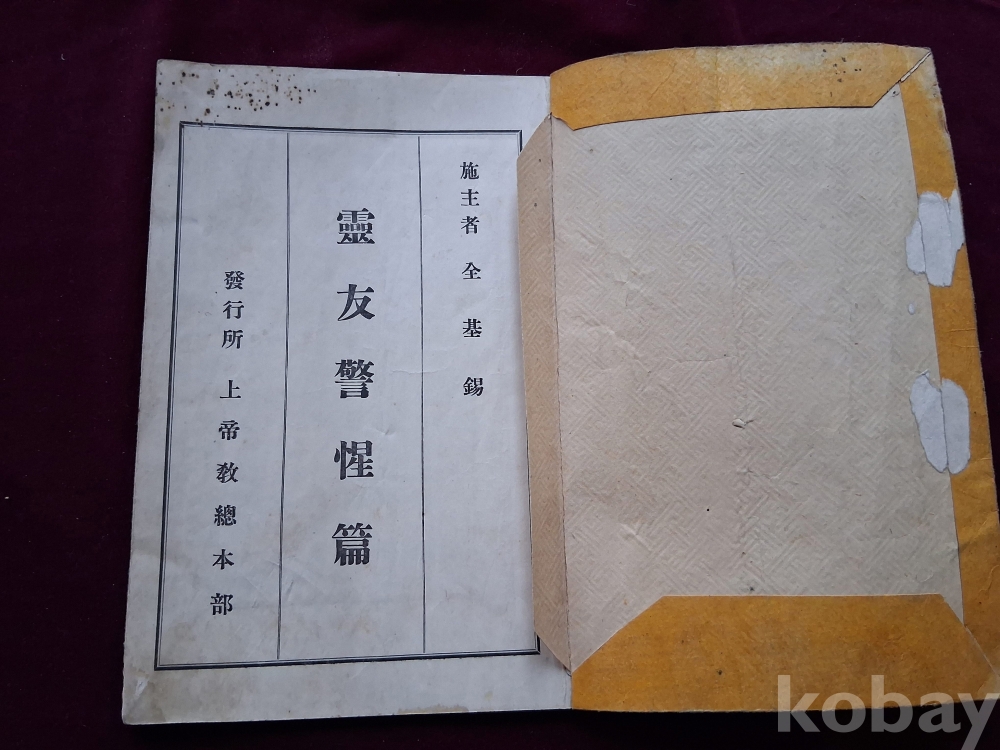 施主者 全基錫
靈友警惺篇
發行所 上帝教總本部
kobay